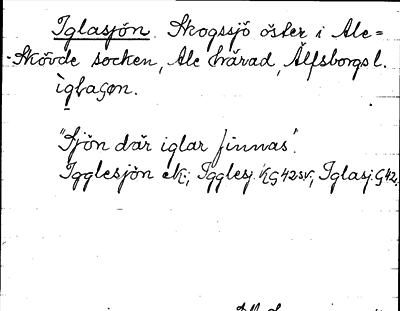 Iglasjön. Skogssjö öster i Ale=
-Skövde socken, Ale härad, Älfsborgs l.
ìglaʃơn.
"Sjön där iglar finnas".
Igglesjön ek.; Igglesj. KG42sv; Iglasj. G42.